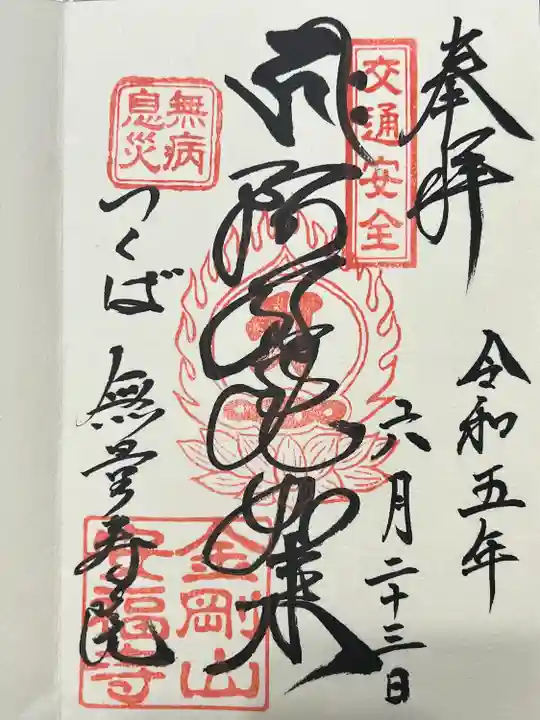 奉拝
令和五年
六月二十三日
交通安全
阿弥陀如来
無病
息災
つくば
無量寿院
金剛山
安福寺